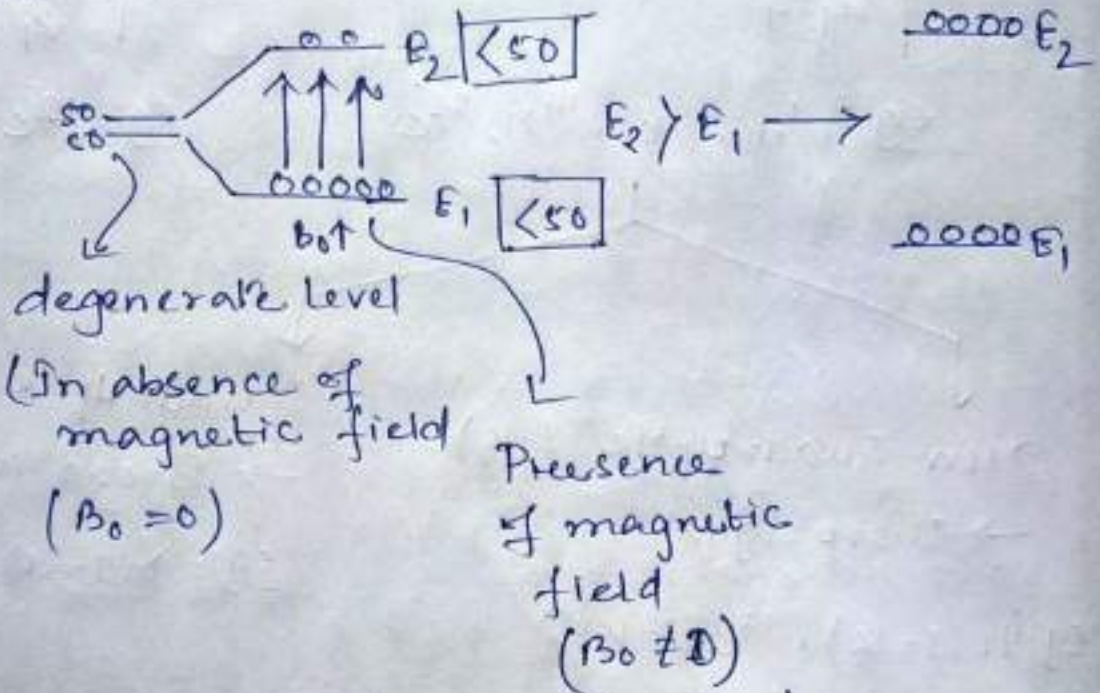 0000 E₂
00 E₂ <50
50
50
E₂ > E₁ →
00000 E₁ <50
B₀↑
0000 E₁
degenerate level
(In absence of
magnetic field
(B₀ = 0)
Preesence
of magnetic
field
(B₀ ≠ 0)